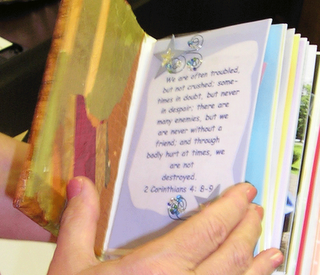 We are often troubled,
but not crushed; some-
times in doubt, but never
in despair; there are
many enemies, but we
are never without a
friend; and through
badly hurt at times, we
are not
destroyed.
2 Corinthians 4: 8-9